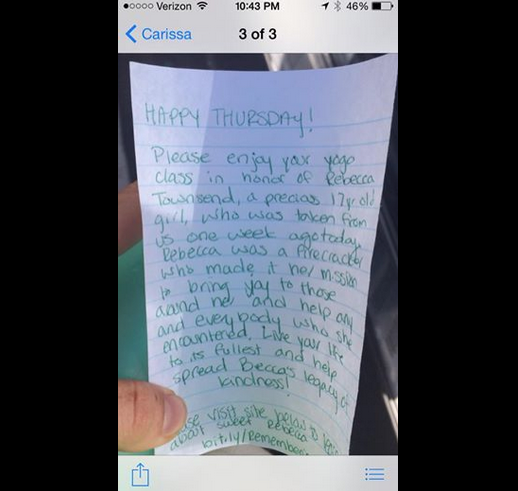 Verizon 10:43 PM 46%
Carissa 3 of 3
HAPPY THURSDAY!
Please enjoy your yoga
class in honor of Rebecca
Townsend, a precious 17yr old
girl, who was taken from
us one week ago today.
Rebecca was a firecracker
who made it her mission
to bring joy to those
around her and help any
and everybody who she
encountered. Live your life
to its fullest and help
spread Becca's legacy of
kindness!
visit site below to
about sweet Rebecca
bitily/Remember